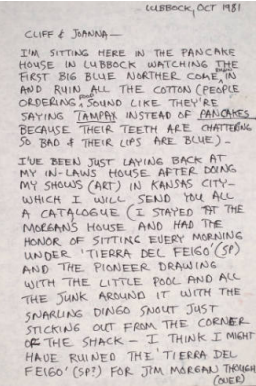 LUBBOCK, OCT 1981
CLIFF & JOANNA—
I'M SITTING HERE IN THE PANCAKE
HOUSE IN LUBBOCK WATCHING THE
FIRST BIG BLUE NORTHER COME IN
AND RUIN ALL THE COTTON (PEOPLE
ORDERING SOUND LIKE THEY'RE
SAYING TAMPAX INSTEAD OF PANCAKES
BECAUSE THEIR TEETH ARE CHATTERING
SO BAD & THEIR LIPS ARE BLUE)—
I'VE BEEN JUST LAYING BACK AT
MY IN-LAWS HOUSE AFTER DOING
MY SHOWS (ART) IN KANSAS CITY—
WHICH I WILL SEND YOU ALL
A CATALOGUE (I STAYED AT THE
MORGAN'S HOUSE AND HAD THE
HONOR OF SITTING EVERY MORNING
UNDER 'TIERRA DEL FEIGO' (SP)
AND THE PIONEER DRAWING
WITH THE LITTLE POOL AND ALL
THE JUNK AROUND IT WITH THE
SNARLING DINGO SNOUT JUST
STICKING OUT FROM THE CORNER
OF THE SHACK — I THINK I MIGHT
HAVE RUINED THE 'TIERRA DEL
FEIGO' (SP?) FOR JIM MORGAN THOUGH
(OVER)